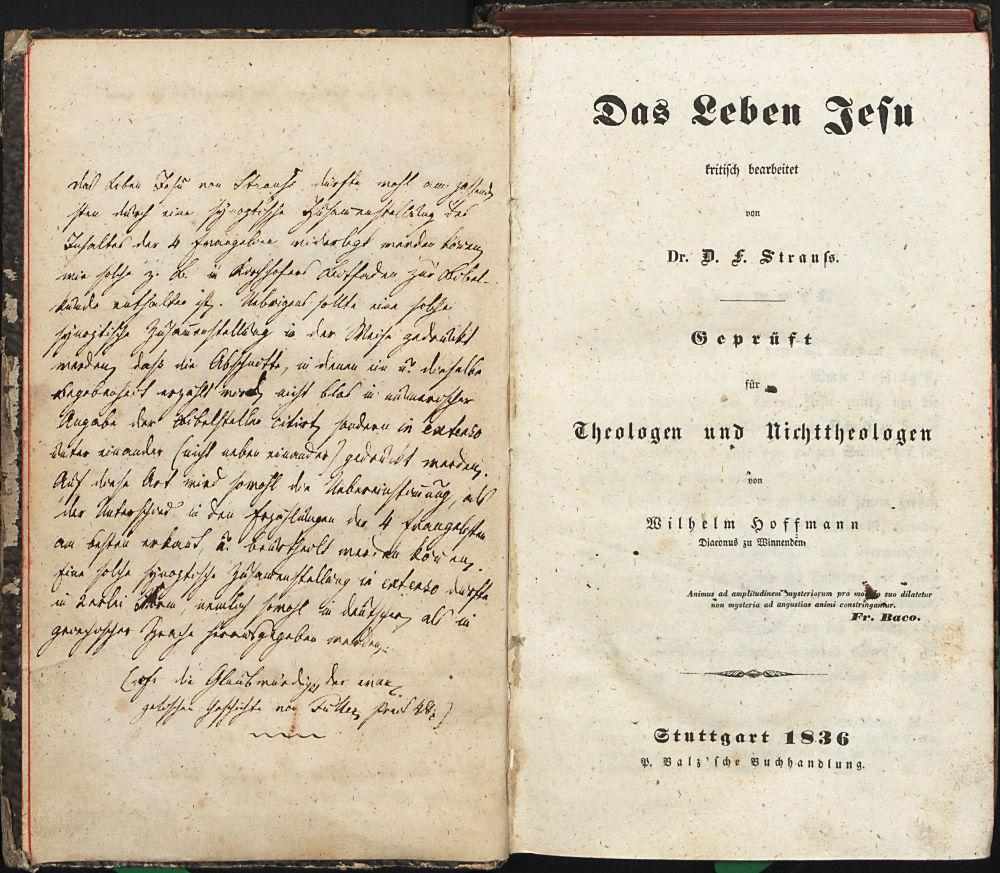 Das Leben Jesu von Strauß dürfte wohl am passend
sten durch eine synoptische Zusammenstellung des
Inhaltes der 4 Evangelien widerlegt werden können,
wie solche z. B. in Kirchhofers Leitfaden zur Bibel-
kunde enthalten ist. Uebrigens sollte eine solche
synoptische Zusammenstellung in der Weise gedruckt
werden, daß die Abschnitte, in denen ein u. dieselbe
Begebenheit erzählt wird, nicht blos in numerischer
Angabe der Bibelstellen citirt, sondern in extenso
unter einander (nicht neben einander) gedruckt werden.
Auf diese Art wird sowohl die Uebereinstimmung, als
der Unterschied in den Erzählungen der 4 Evangelisten
am besten erkannt, u. beurtheilt werden können.
Eine solche synoptische Zusammenstellung in extenso dürfte
in 2erlei Form, nemlich sowohl in deutscher, als in
griechischer Sprache herausgegeben werden.
(cfr. die Glaubwürdigk. der evan
gelischen Geschichte von
Das Leben Jesu
kritisch bearbeitet
von
Dr. D. F. Strauss.
Geprüft
für
Theologen und Nichttheologen
von
Wilhelm Hoffmann
Diaconus zu Winnenden.
Animus ad amplitudinem mysteriorum pro modulo suo dilatetur
non mysteria ad angustias animi constringantur.
Fr. Baco.
Stuttgart 1836
P. Balz'sche Buchhandlung.